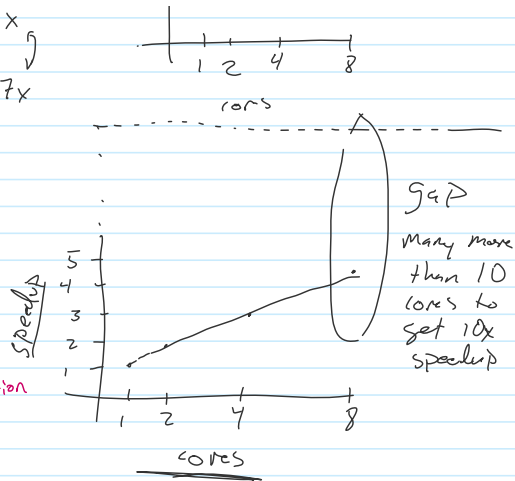 x
7x
1 2 4 8
cors
gap
many more
than 10
cores to
get 10x
speedup
speedup
5
4
3
2
1
ion
1 2 4 8
cores